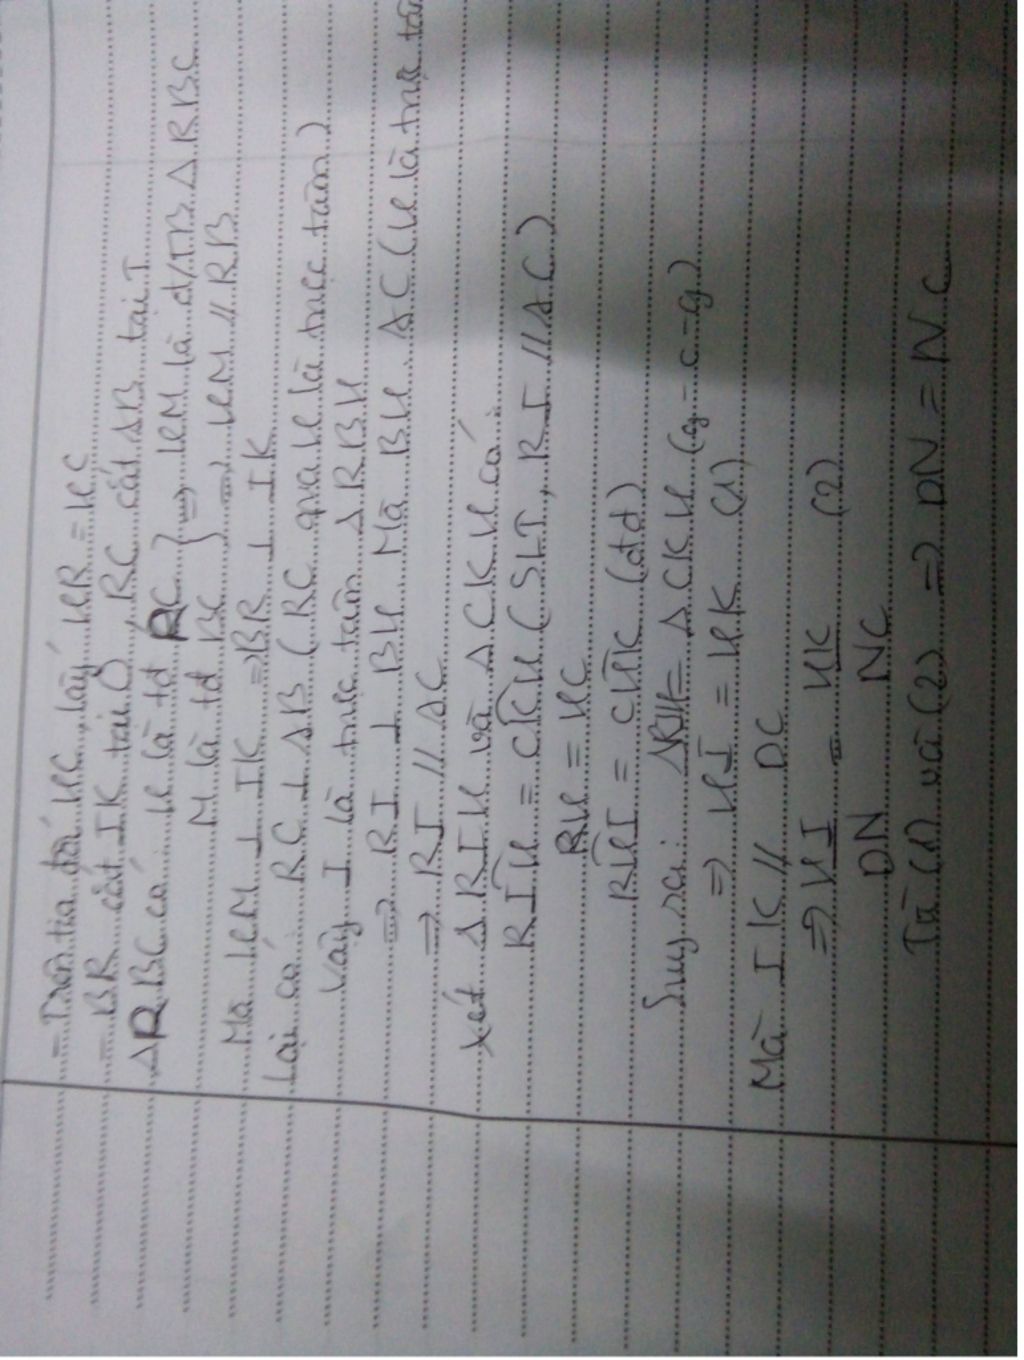 - Trên tia đối HC, lấy HR = HC
- BR cắt IK tại O, RC cắt AB tại T
ΔRBC có: H là tđ RC } => HM là đ/TB ΔRBC
M là tđ BC } => HM // RB
Mà HM ⊥ IK => BR ⊥ IK
Lại có: RC ⊥ AB (RC qua H là trực tâm)
Vậy I là trực tâm ΔRBH
=> RI ⊥ BH Mà BH ⊥ AC (H là trực tâ
=> RI // AC
Xét ΔRIH và ΔCKH có:
RIH = CKH (SLT, RI // AC)
RH = HC
RHI = CHK (đđ)
Suy ra: ΔRIH = ΔCKH (g-c-g)
=> HI = HK (1)
Mà IK // DC
=> HI/DN = HK/NC (2)
Từ (1) và (2) => DN = NC